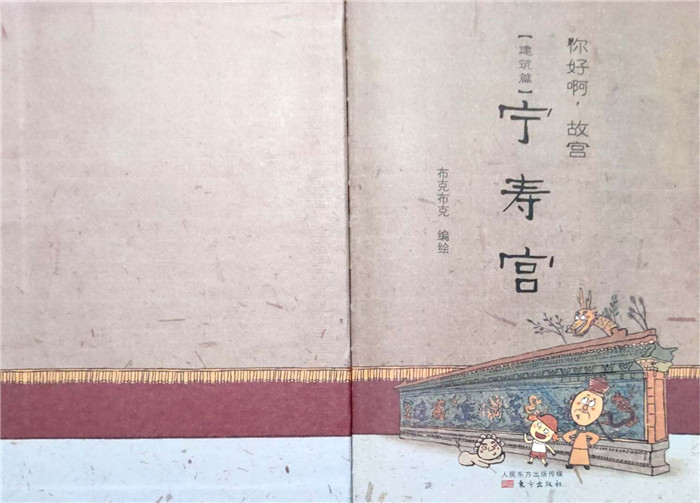 你好啊，故宫
【建筑篇】
宁寿宫
布克布克 编绘
人民东方出版传媒
东方出版社